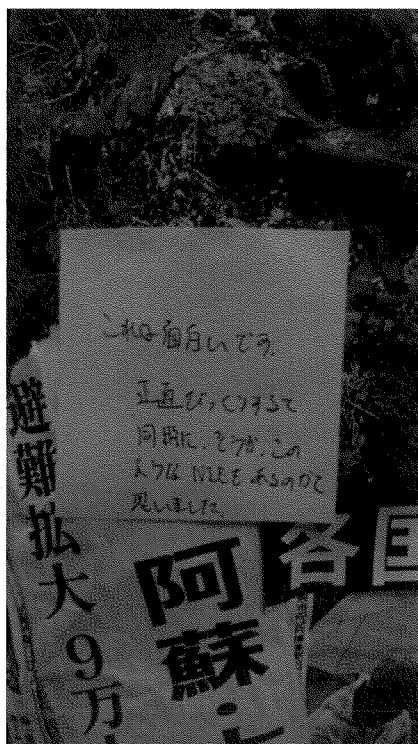 これは面白いです。
正直びっくりすると
同時に、そうか、この
ような NLEも あるのかと
思いました
避難拡大 9万
阿蘇・
各国